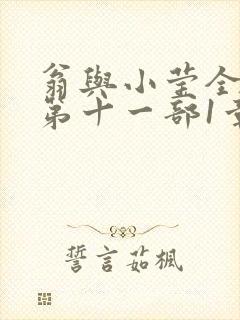 翁與小莹全
第十一部1
誓言茹楓